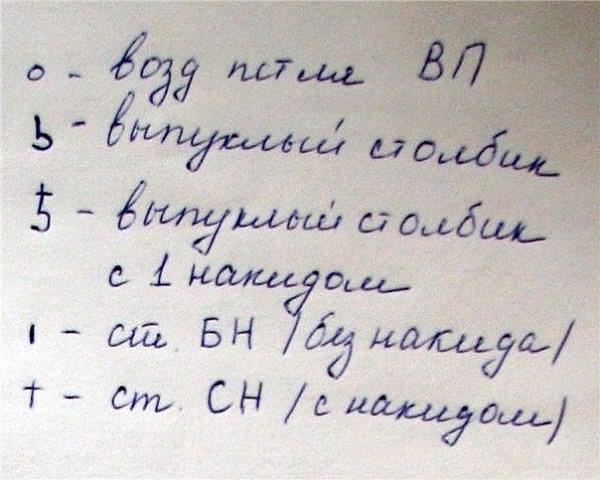 о - возд петля ВП
ь - выпуклый столбик
t - выпуклый столбик
с 1 накидом
ı - ст. БН /без накида/
† - ст. СН /с накидом/